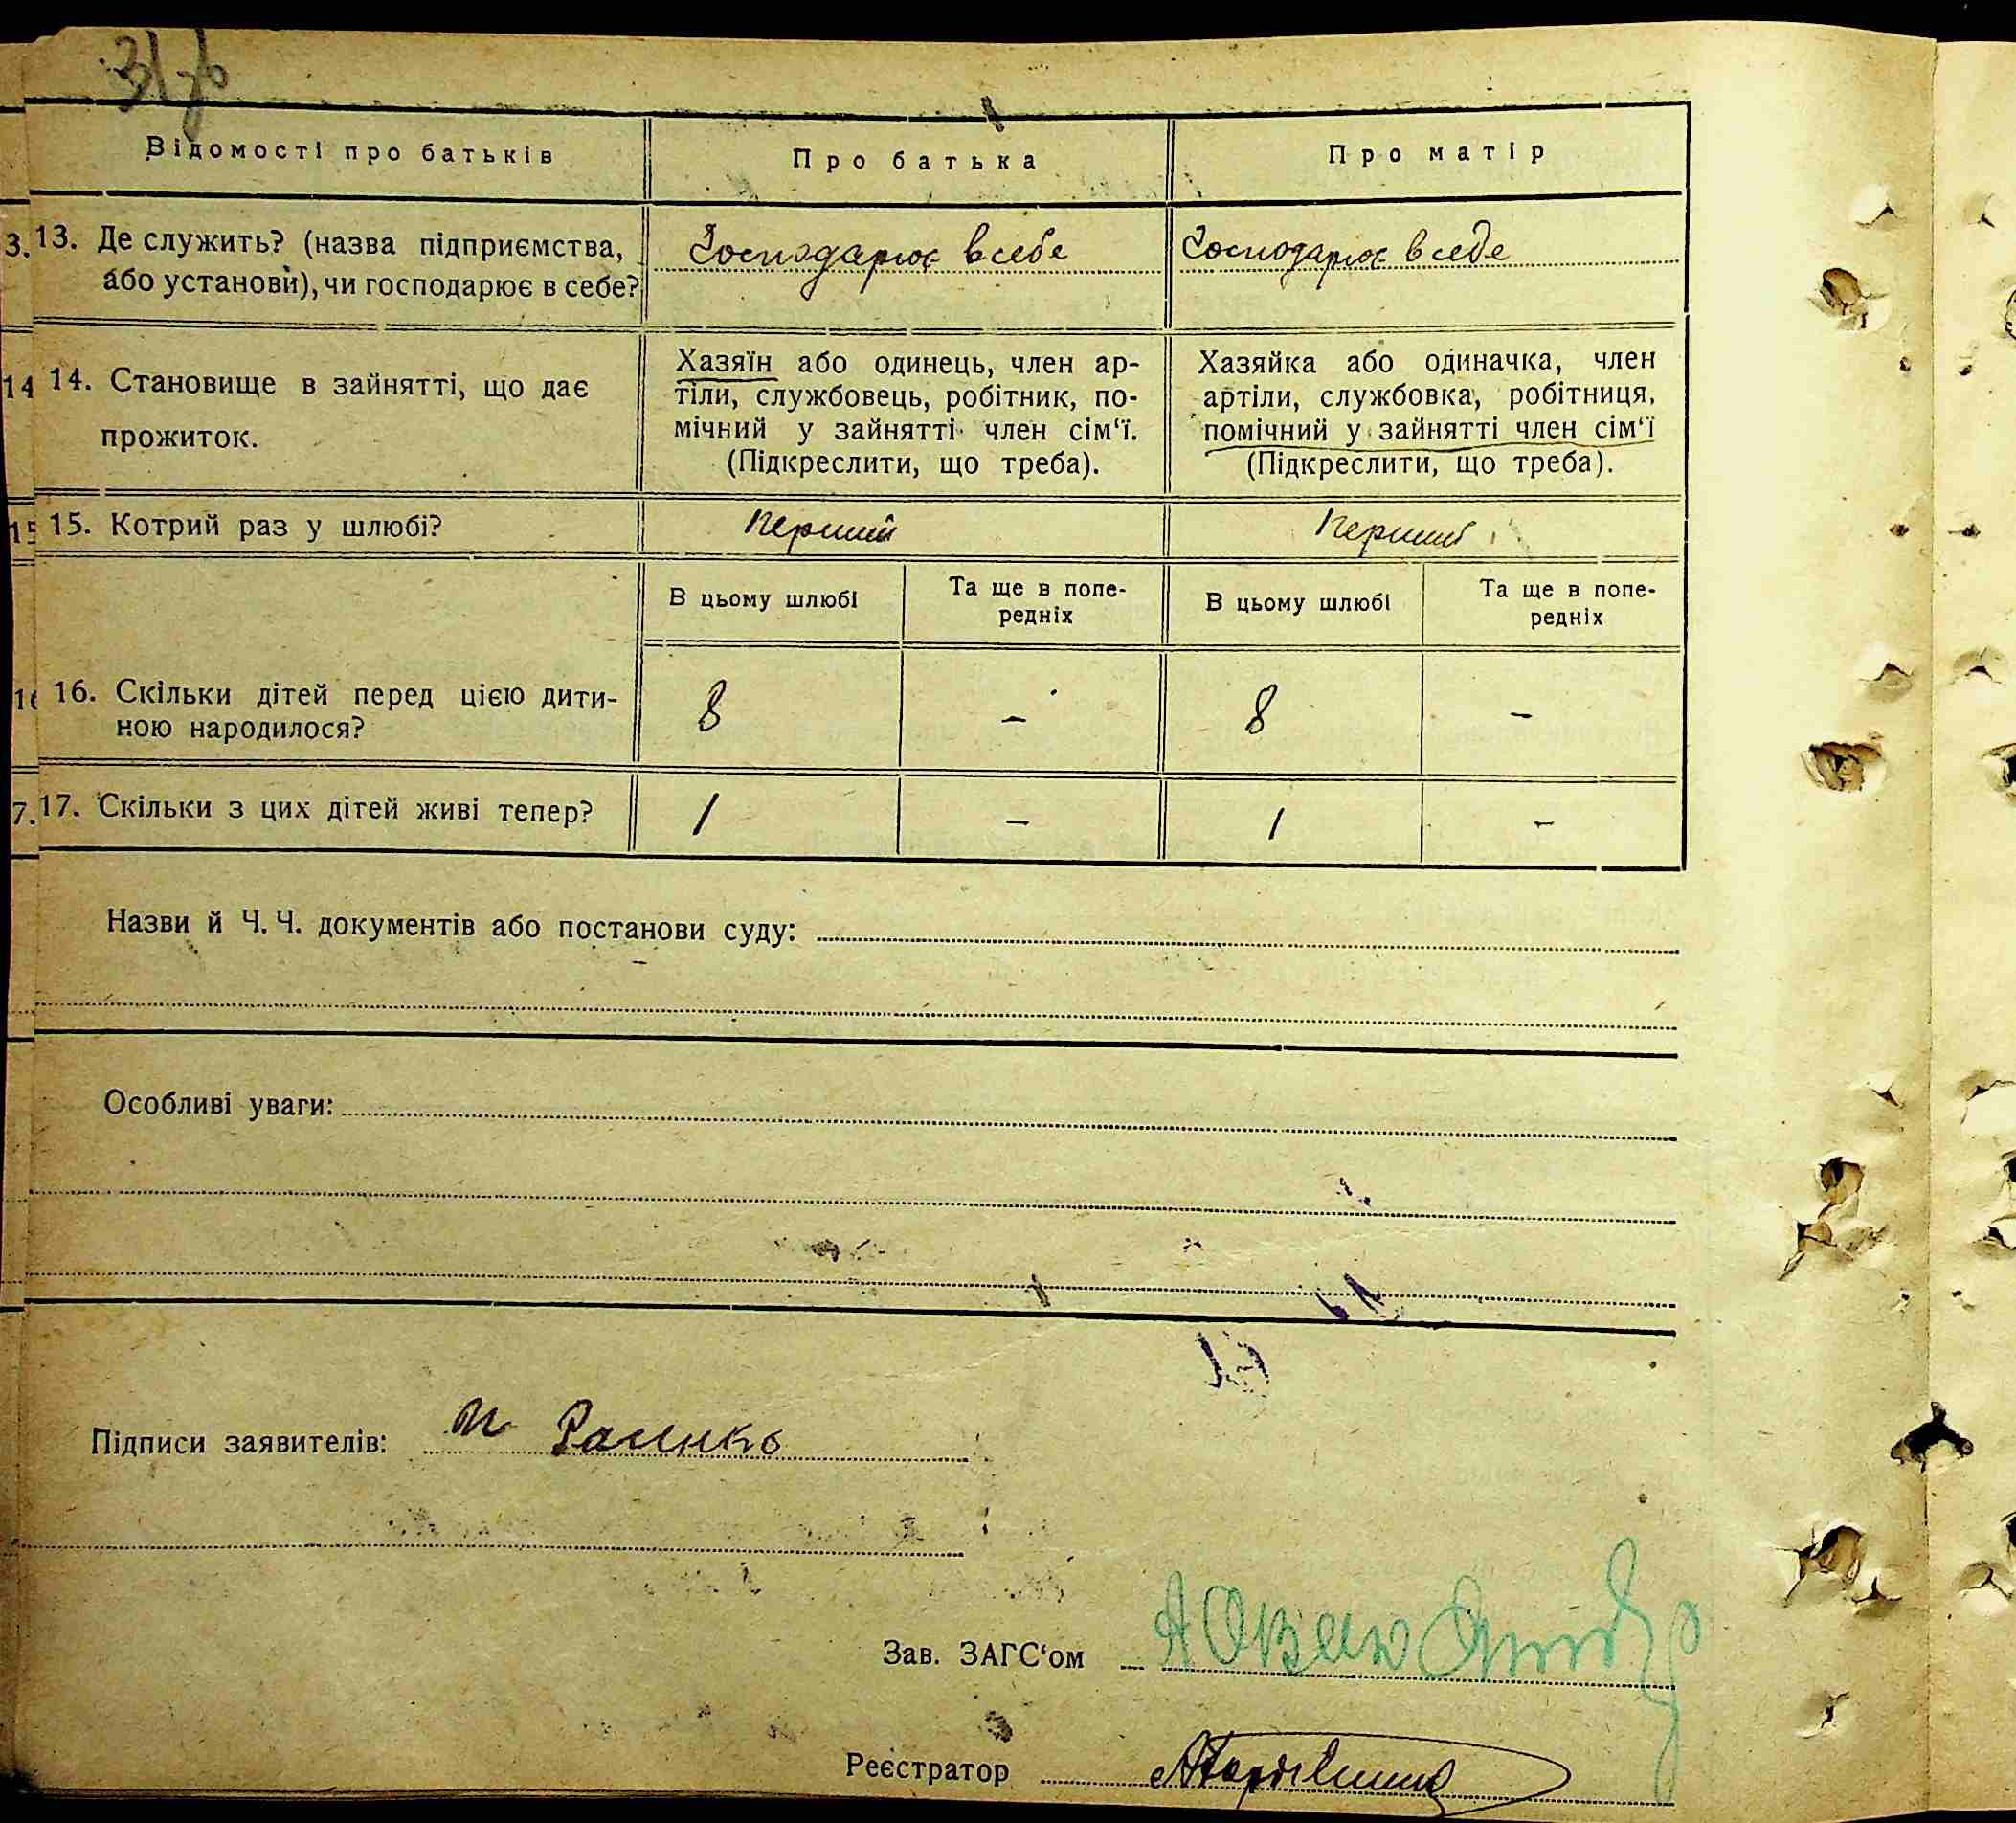 Відомості про батьків Про батька Про матір
13. Де служить? (назва підприємства, Господарює в себе Господарює в себе
або установи), чи господарює в себе?
14. Становище в зайнятті, що дає
прожиток.
Хазяїн або одинець, член ар-
тіли, службовець, робітник, по-
мічний у зайнятті член сім‘ї.
(Підкреслити, що треба).
Хазяйка або одиначка, член
артіли, службовка, робітниця,
помічний у зайнятті член сім‘ї
(Підкреслити, що треба).
15. Котрий раз у шлюбі? Перший Перший
В цьому шлюбі
Та ще в попе-
редніх
В цьому шлюбі
Та ще в попе-
редніх
16. Скільки дітей перед цією дити-
ною народилося?
8 – 8 –
17. Скільки з цих дітей живі тепер? 1 – 1 –
Назви й Ч. Ч. документів або постанови суду:
Особливі уваги:
Підписи заявителів:
Зав. ЗАГС‘ом
Реєстратор